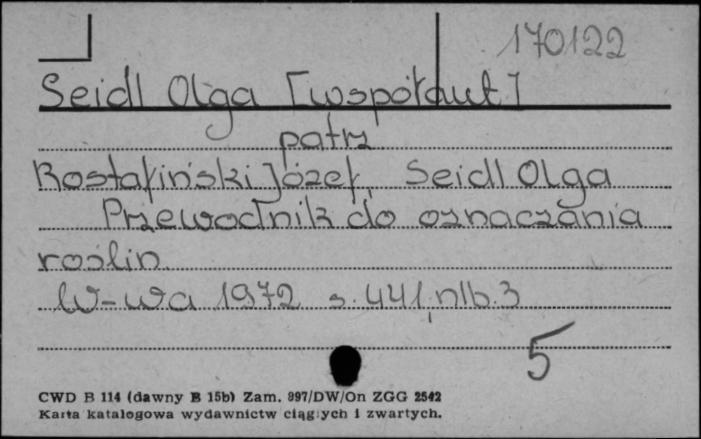 170122
Seidl Olga [współaut]
patrz
Rostafiński Józef, Seidl Olga
Przewodnik do oznaczania
roślin.
W-wa 1972 s. 441, nlb. 3
5
CWD B 114 (dawny B 15b) Zam. 997/DW/On ZGG 2542
Karta katalogowa wydawnictw ciągłych i zwartych.